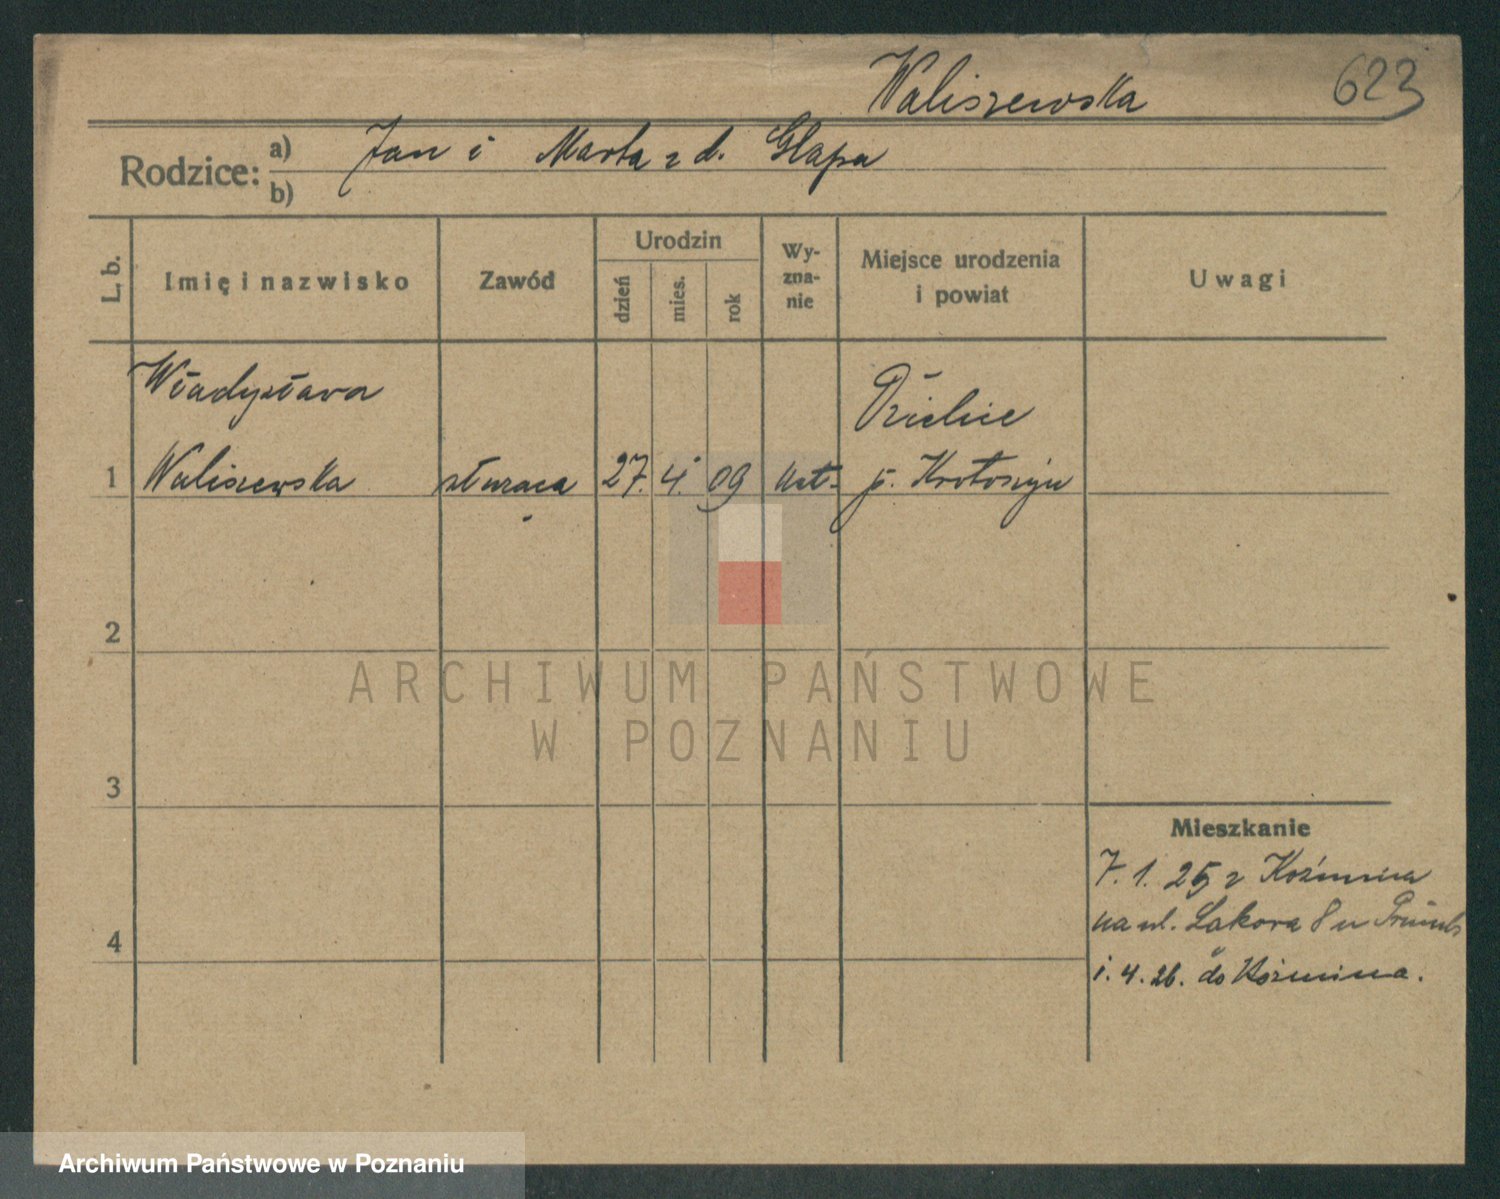 Waliszewska 623
Rodzice: a) Jan i Marta z d. Glapa
b)
L. b. Imię i nazwisko Zawód Urodzin dzień mies. rok Wy-zna-nie Miejsce urodzenia i powiat Uwagi
Władysława
1 Waliszewska służąca 27. 4. 09 kat.
p. Krotoszyn
2
ARCHIWUM PAŃSTWOWE
W POZNANIU
3
Mieszkanie
7. 1. 25 z Koźmina
na ul. Łąkova 8 u
4
1. 4. 26. do Koźmina.
Archiwum Państwowe w Poznaniu